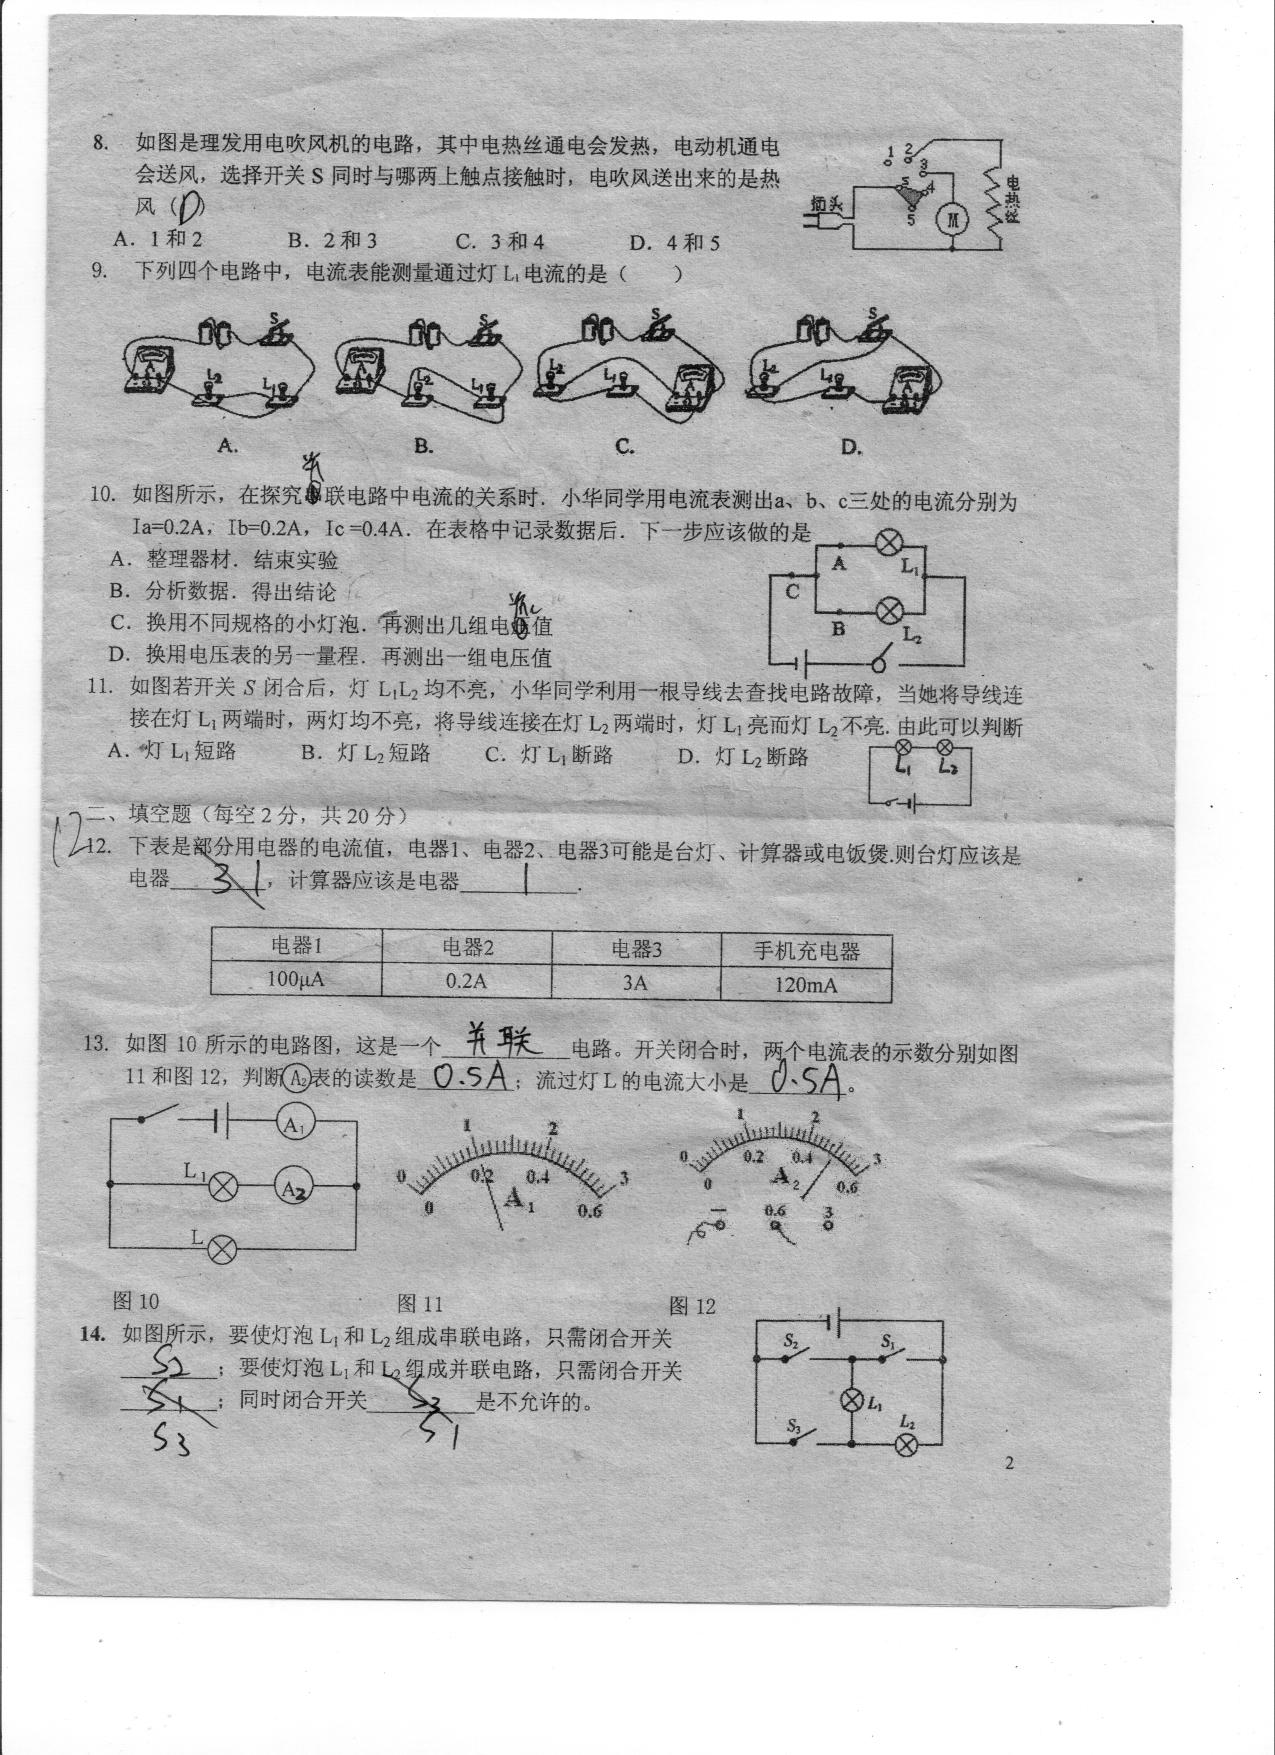 8. 如图是理发用电吹风机的电路，其中电热丝通电会发热，电动机通电
会送风，选择开关 S 同时与哪两上触点接触时，电吹风送出来的是热
风（D）
A．1 和 2 B．2 和 3 C．3 和 4 D．4 和 5
1 2 3 S 4 5 插头 M 电热丝
9. 下列四个电路中，电流表能测量通过灯 L₁ 电流的是（ ）
S L₂ L₁ S L₂ L₁ S L₂ L₁ S L₂ L₁
A. B. C. D.
并
10. 如图所示，在探究联电路中电流的关系时．小华同学用电流表测出a、b、c三处的电流分别为
Ia=0.2A，Ib=0.2A，Ic =0.4A．在表格中记录数据后．下一步应该做的是
A．整理器材．结束实验
B．分析数据．得出结论
流
C．换用不同规格的小灯泡．再测出几组电值
D．换用电压表的另一量程．再测出一组电压值
A L₁ C B L₂
11. 如图若开关 S 闭合后，灯 L₁L₂ 均不亮，小华同学利用一根导线去查找电路故障，当她将导线连
接在灯 L₁ 两端时，两灯均不亮，将导线连接在灯 L₂ 两端时，灯 L₁ 亮而灯 L₂ 不亮. 由此可以判断
A．灯 L₁ 短路 B．灯 L₂ 短路 C．灯 L₁ 断路 D．灯 L₂ 断路
L₁ L₂
二、填空题（每空 2 分，共 20 分）
12
12. 下表是部分用电器的电流值，电器1、电器2、电器3可能是台灯、计算器或电饭煲.则台灯应该是
电器 3 1 ，计算器应该是电器 1 .
电器1 电器2 电器3 手机充电器
100μA 0.2A 3A 120mA
13. 如图 10 所示的电路图，这是一个 并联 电路。开关闭合时，两个电流表的示数分别如图
11 和图 12，判断 A₂ 表的读数是 0.5A ；流过灯 L 的电流大小是 0.5A 。
A₁ L₁ A₂ L
0 1 2 3 0 0.2 0.4 0.6 A₁
0 1 2 3 0 0.2 0.4 0.6 A₂ − 0.6 3
图 10 图 11 图 12
14. 如图所示，要使灯泡 L₁ 和 L₂ 组成串联电路，只需闭合开关
S2 ；要使灯泡 L₁ 和 L₂ 组成并联电路，只需闭合开关
S1 ；同时闭合开关 S3 是不允许的。
S3 S1
S₂ S₁ L₁ S₃ L₂
2